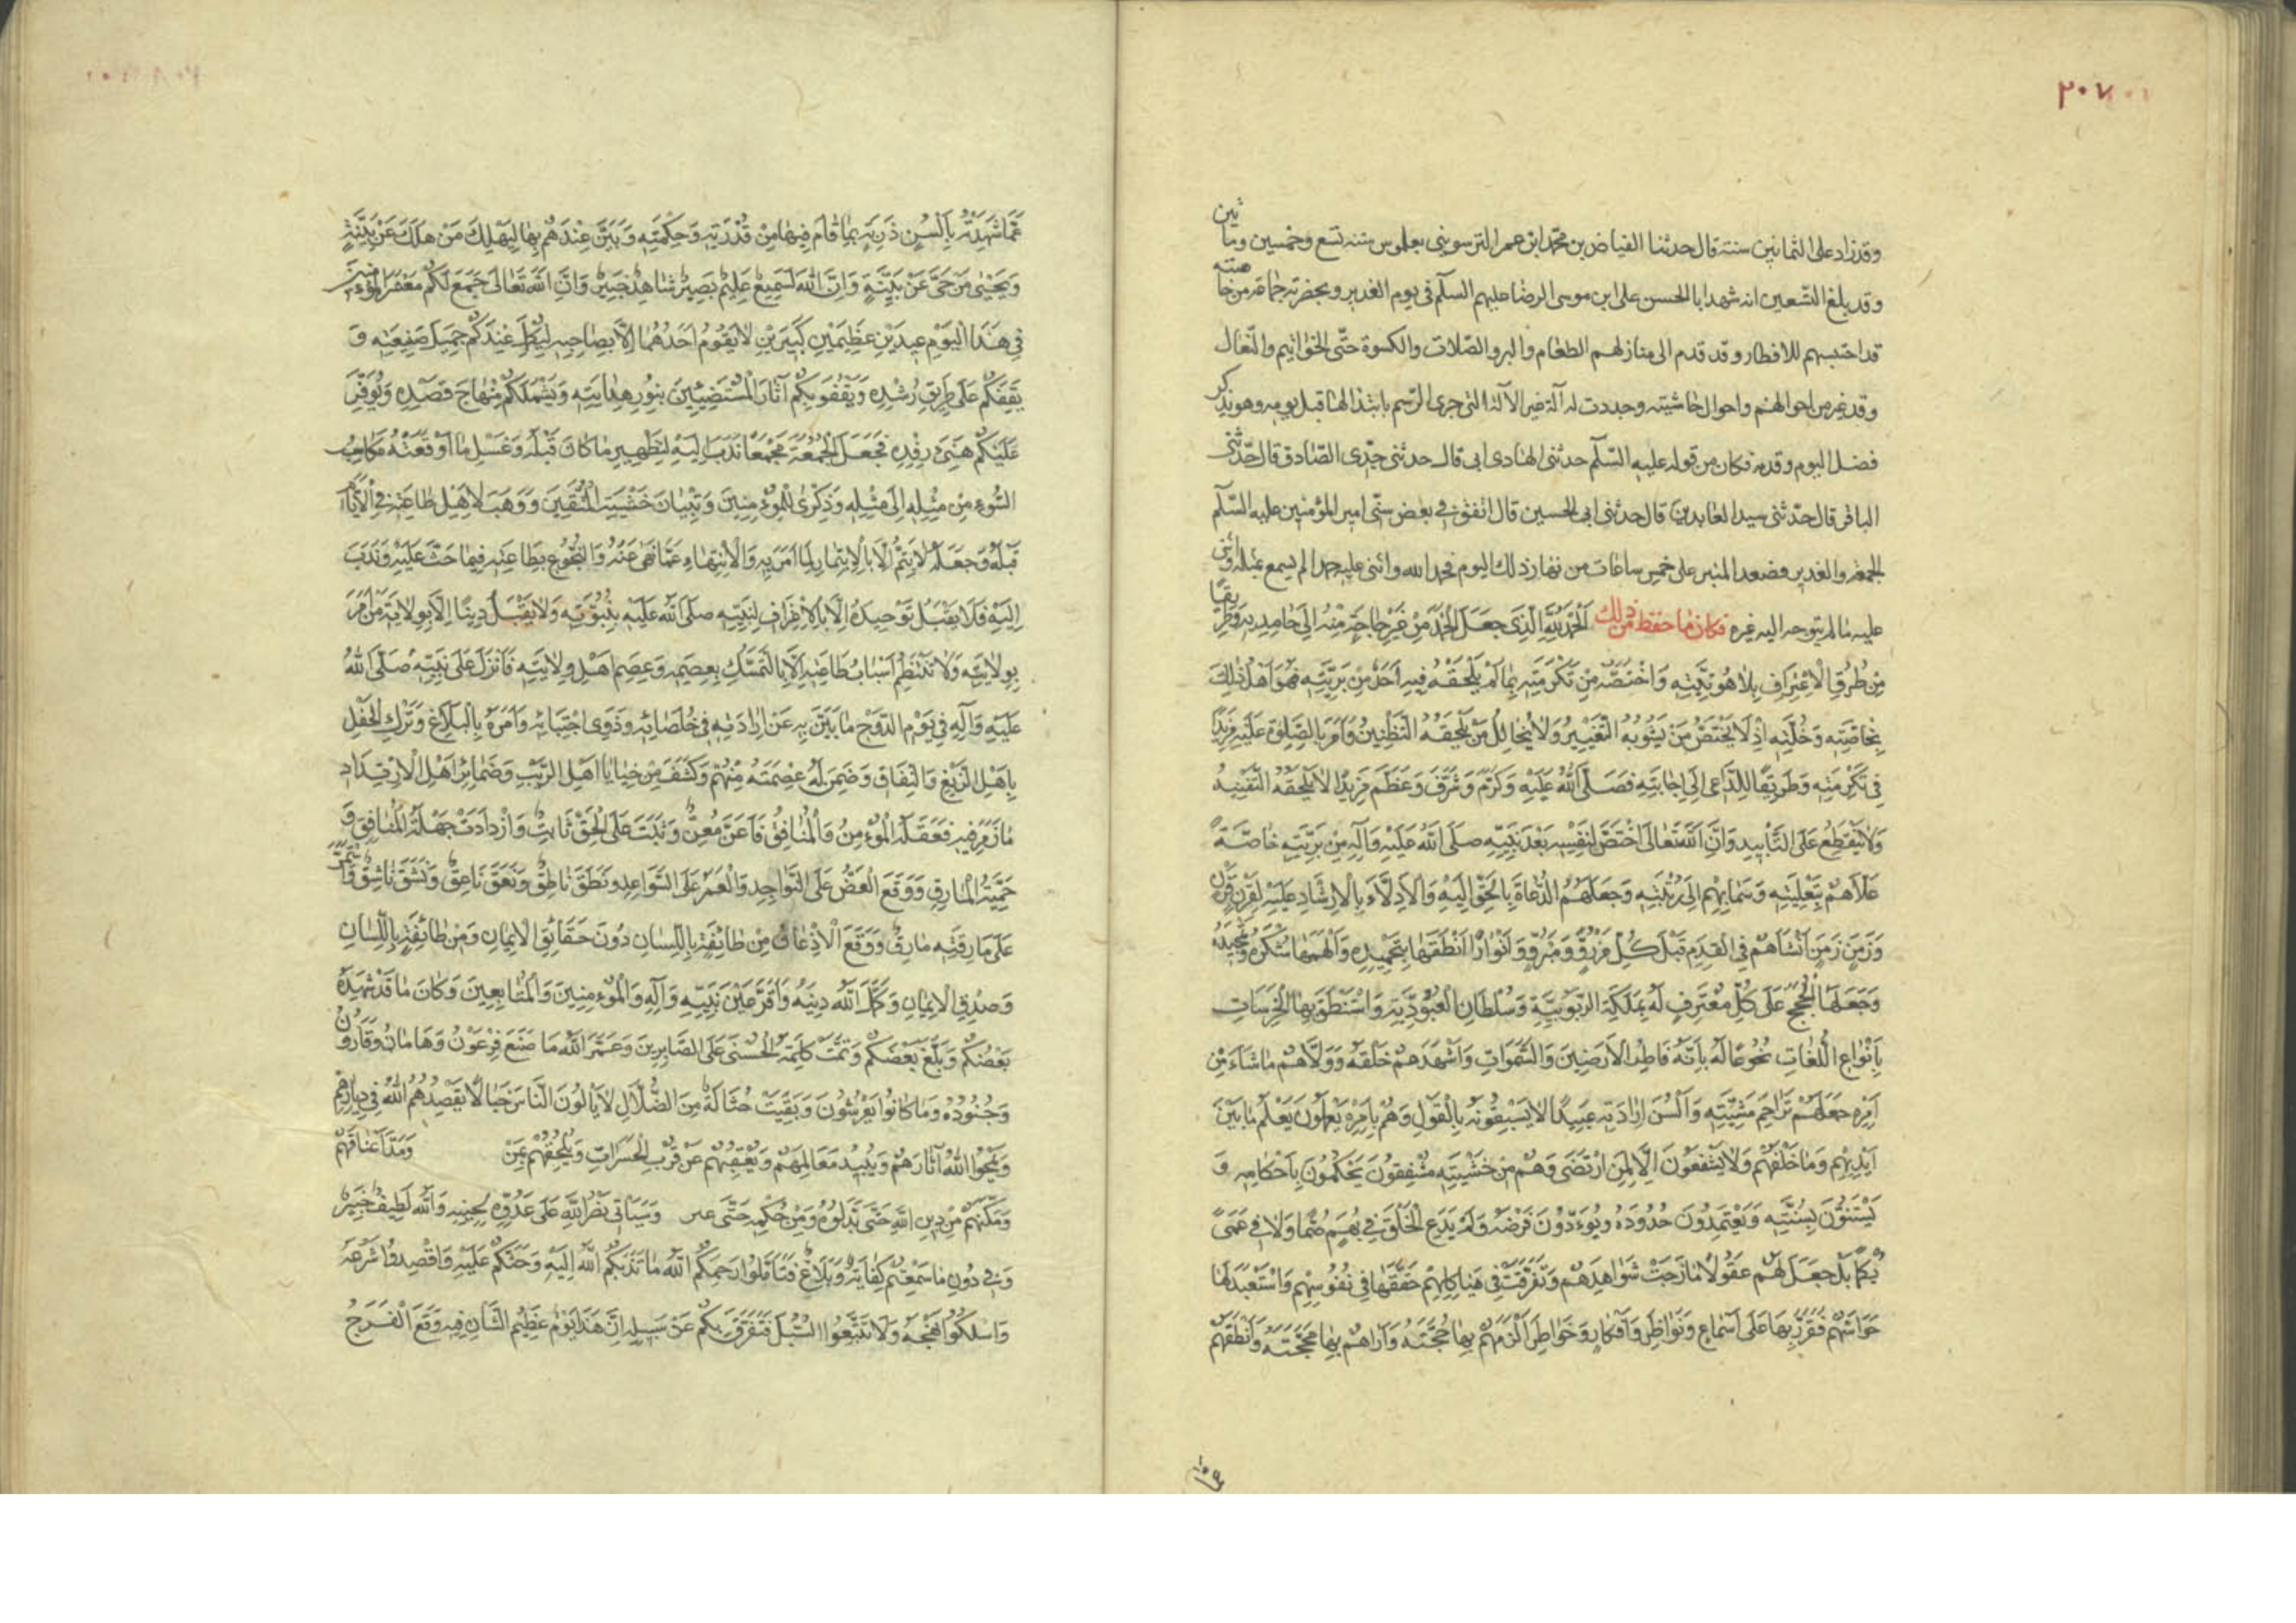 ٢٠٧
وقد زاد على الثمانين سنة قال حدثنا الفياض بن محمد ابن عمر الترسوسي بطوس سنة تسع وخمسين وماتين
وقد بلغ التسعين انه شهد ابا الحسن على ابن موسى الرضا عليهم السلم فى يوم الغدير وبحضرته جماعة من خاصته
قد احتبسهم للافطار وقد قدم الى منازلهم الطعام والبر والصلات والكسوة حتى الخواتيم والنعال
وقد غير من احوالهم واحوال حاشيته وجددت له آلة غير الآلة التى جرى الرسم بابتذالها قبل يومه وهو يذكر
فضل اليوم وقدمه فكان من قوله عليه السلم حدثنى الهادى ابى قال حدثنى جدى الصادق قال حدثنى
الباقر قال حدثنى سيد العابدين قال حدثنى ابى الحسين قال اتفق فى بعض سنى امير المؤمنين عليه السلم
الجمعة والغدير فصعد المنبر على خمس ساعات من نهار ذلك اليوم فحمد الله واثنى عليه حمدا لم يسمع بمثله واثنى
عليه ما لم يتوجه اليه غيره فكان ما حفظ من ذلك اَلْحَمْدُ لِلّٰهِ الَّذِى جَعَلَ الْحَمْدَ مِنْ غَيْرِ حَاجَةٍ مِنْهُ اِلَى حَامِدِيهِ وَطَرِيقًا
مِنْ طُرُقِ الْاِعْتِرَافِ بِلَاهُوتِيَّتِهِ وَاخْتَصَّهُ مِنْ تَكْرِمَتِهِ بِمَا لَمْ يَلْحَقْهُ فِيهِ اَحَدٌ مِنْ بَرِيَّتِهِ فَهُوَ اَهْلُ ذٰلِكَ
بِخَاصَّتِهِ وَخُلَّتِهِ اِذْ لَا يَخْتَصُّ مَنْ يَشُوبُهُ التَّغْيِيرُ وَلَا يُخَالِلُ مَنْ يَلْحَقُهُ التَّظْنِينُ وَاَمَرَ بِالصَّلٰوةِ عَلَيْهِ مَزِيدًا
فِى تَكْرِمَتِهِ وَطَرِيقًا لِلدَّاعِى اِلَى اِجَابَتِهِ فَصَلَّى اللّٰهُ عَلَيْهِ وَكَرَّمَ وَشَرَّفَ وَعَظَّمَ مَزِيدًا لَا يَلْحَقُهُ التَّفْنِيدُ
وَلَا يَنْقَطِعُ عَلَى التَّأْبِيدِ وَاَنَّ اللّٰهَ تَعَالٰى اخْتَصَّ لِنَفْسِهِ بَعْدَ نَبِيِّهِ صَلَّى اللّٰهُ عَلَيْهِ وَآلِهِ مِنْ بَرِيَّتِهِ خَاصَّةً
عَلَّاهُمْ بِتَعْلِيَتِهِ وَسَمَا بِهِمْ اِلَى رُتْبَتِهِ وَجَعَلَهُمُ الدُّعَاةَ بِالْحَقِّ اِلَيْهِ وَالْاَدِلَّاءَ بِالْاِرْشَادِ عَلَيْهِ لِقَرْنٍ قَرْنٍ
وَزَمَنٍ زَمَنٍ اَنْشَاَهُمْ فِى الْقِدَمِ قَبْلَ كُلِّ مَذْرُوٍّ وَمَبْرُوٍّ وَاَنْوَارًا اَنْطَقَهَا بِتَحْمِيدِهِ وَاَلْهَمَهَا شُكْرَهُ وَتَمْجِيدَهُ
وَجَعَلَهَا الْحُجَجَ عَلَى كُلِّ مُعْتَرِفٍ لَهُ بِمَلَكَةِ الرُّبُوبِيَّةِ وَسُلْطَانِ الْعُبُودِيَّةِ وَاسْتَنْطَقَ بِهَا الْخَرَسَاتِ
بِاَنْوَاعِ اللُّغَاتِ بُخُوعًا لَهُ بِاَنَّهُ فَاطِرُ الْاَرَضِينَ وَالسَّمَوَاتِ وَاَشْهَدَهُمْ خَلْقَهُ وَوَلَّاهُمْ مَا شَاءَ مِنْ
اَمْرِهِ جَعَلَهُمْ تَرَاجِمَ مَشِيَّتِهِ وَاَلْسُنَ اِرَادَتِهِ عَبِيدًا لَا يَسْبِقُونَهُ بِالْقَوْلِ وَهُمْ بِاَمْرِهِ يَعْمَلُونَ يَعْلَمُ مَا بَيْنَ
اَيْدِيهِمْ وَمَا خَلْفَهُمْ وَلَا يَشْفَعُونَ اِلَّا لِمَنِ ارْتَضَى وَهُمْ مِنْ خَشْيَتِهِ مُشْفِقُونَ يَحْكُمُونَ بِاَحْكَامِهِ وَ
يَسْتَنُّونَ بِسُنَّتِهِ وَيَعْتَمِدُونَ حُدُودَهُ وَيُؤَدُّونَ فَرْضَهُ وَلَمْ يَدَعِ الْخَلْقَ فِى بُهَمٍ صُمًّا وَلَا فِى عَمًى
بُكْمًا بَلْ جَعَلَ لَهُمْ عُقُولًا مَازَجَتْ شَوَاهِدَهُمْ وَتَفَرَّقَتْ فِى هَيَاكِلِهِمْ حَقَّقَهَا فِى نُفُوسِهِمْ وَاسْتَعْبَدَ لَهَا
حَوَاسَّهُمْ فَقَرَّرَ بِهَا عَلَى اَسْمَاعٍ وَنَوَاظِرَ وَاَفْكَارٍ وَخَوَاطِرَ اَلْزَمَهُمْ بِهَا حُجَّتَهُ وَاَرَاهُمْ بِهَا مَحَجَّتَهُ وَاَنْطَقَهُمْ
عَمَّا شَهِدَتْهُ بِاَلْسُنٍ ذَرِبَةٍ بِمَا قَامَ فِيهَا مِنْ قُدْرَتِهِ وَحِكْمَتِهِ وَبَيَّنَ عِنْدَهُمْ بِهَا لِيَهْلِكَ مَنْ هَلَكَ عَنْ بَيِّنَةٍ
وَيَحْيٰى مَنْ حَىَّ عَنْ بَيِّنَةٍ وَاِنَّ اللّٰهَ لَسَمِيعٌ عَلِيمٌ بَصِيرٌ شَاهِدٌ خَبِيرٌ وَاَنَّ اللّٰهَ تَعَالٰى جَمَعَ لَكُمْ مَعْشَرَ الْمُؤْمِنِينَ
فِى هٰذَا الْيَوْمِ عِيدَيْنِ عَظِيمَيْنِ كَبِيرَيْنِ لَا يَقُومُ اَحَدُهُمَا اِلَّا بِصَاحِبِهِ لِيُكْمِلَ عِنْدَكُمْ جَمِيلَ صَنِيعَتِهِ وَ
يَقِفَكُمْ عَلَى طَرِيقِ رُشْدِهِ وَيَقْفُوَ بِكُمْ آثَارَ الْمُسْتَضِيئِينَ بِنُورِ هِدَايَتِهِ وَيَشْمَلَكُمْ مِنْهَاجَ قَصْدِهِ وَيُوَفِّرَ
عَلَيْكُمْ هَنِىءَ رِفْدِهِ فَجَعَلَ الْجُمُعَةَ مَجْمَعًا نَدَبَ اِلَيْهِ لِتَطْهِيرِ مَا كَانَ قَبْلَهُ وَغَسْلِ مَا اَوْقَعَتْهُ مَكَاسِبُ
السُّوءِ مِنْ مِثْلِهِ اِلَى مِثْلِهِ وَذِكْرٰى لِلْمُؤْمِنِينَ وَتِبْيَانَ خَشْيَةِ الْمُتَّقِينَ وَوَهَبَ لِاَهْلِ طَاعَتِهِ فِى الْاَيَّامِ
قَبْلَهُ وَجَعَلَهُ لَا يَتِمُّ اِلَّا بِالْاِيتِمَارِ لِمَا اَمَرَ بِهِ وَالْاِنْتِهَاءِ عَمَّا نَهَى عَنْهُ وَالْبُخُوعِ بِطَاعَتِهِ فِيمَا حَثَّ عَلَيْهِ وَنَدَبَ
اِلَيْهِ فَلَا يَقْبَلُ تَوْحِيدَهُ اِلَّا بِالْاِعْتِرَافِ لِنَبِيِّهِ صَلَّى اللّٰهُ عَلَيْهِ بِنُبُوَّتِهِ وَلَا يَقْبَلُ دِينًا اِلَّا بِوِلَايَةِ مَنْ اَمَرَ
بِوِلَايَتِهِ وَلَا تَنْتَظِمُ اَسْبَابُ طَاعَتِهِ اِلَّا بِالتَّمَسُّكِ بِعِصَمِهِ وَعِصَمِ اَهْلِ وِلَايَتِهِ فَاَنْزَلَ عَلَى نَبِيِّهِ صَلَّى اللّٰهُ
عَلَيْهِ وَآلِهِ فِى يَوْمِ الدَّوْحِ مَا بَيَّنَ بِهِ عَنْ اِرَادَتِهِ فِى خُلَصَائِهِ وَذَوِى اجْتِبَائِهِ وَاَمَرَهُ بِالْبَلَاغِ وَتَرْكِ الْحَفْلِ
بِاَهْلِ الزَّيْغِ وَالنِّفَاقِ وَضَمِنَ لَهُ عِصْمَتَهُ مِنْهُمْ وَكَشَفَ مِنْ خَبَايَا اَهْلِ الرَّيْبِ وَضَمَائِرِ اَهْلِ الْاِرْتِدَادِ
مَا رَمَزَ فِيهِ فَعَقَلَهُ الْمُؤْمِنُ وَالْمُنَافِقُ فَاَعَنَّ مُعِنٌّ وَثَبَتَ عَلَى الْحَقِّ ثَابِتٌ وَازْدَادَتْ جَهْلَةُ الْمُنَافِقِ وَ
حَمِيَّةُ الْمَارِقِ وَوَقَعَ الْعَضُّ عَلَى النَّوَاجِدِ وَالْغَمْزُ عَلَى السَّوَاعِدِ وَنَطَقَ نَاطِقٌ وَنَعَقَ نَاعِقٌ وَنَشَقَ نَاشِقٌ وَاسْتَمَرَّ
عَلَى مَارِقَتِهِ مَارِقٌ وَوَقَعَ الْاِذْعَانُ مِنْ طَائِفَةٍ بِاللِّسَانِ دُونَ حَقَائِقِ الْاِيمَانِ وَمِنْ طَائِفَةٍ بِاللِّسَانِ
وَصِدْقِ الْاِيمَانِ وَكَمَّلَ اللّٰهُ دِينَهُ وَاَقَرَّ عَيْنَ نَبِيِّهِ وَآلِهِ وَالْمُؤْمِنِينَ وَالْمُتَابِعِينَ وَكَانَ مَا قَدْ شَهِدَهُ
بَعْضُكُمْ وَبَلَغَ بَعْضَكُمْ وَتَمَّتْ كَلِمَةُ الْحُسْنَى عَلَى الصَّابِرِينَ وَدَمَّرَ اللّٰهُ مَا صَنَعَ فِرْعَوْنُ وَهَامَانُ وَقَارُونُ
وَجُنُودُهُ وَمَا كَانُوا يَعْرِشُونَ وَبَقِيَتْ حُثَالَةٌ مِنَ الضُّلَّالِ لَا يَالُونَ النَّاسَ خَبَالًا يَقْصِدُهُمُ اللّٰهُ فِى دِيَارِهِمْ
وَيَمْحُوا اللّٰهُ آثَارَهُمْ وَيُبِيدُ مَعَالِمَهُمْ وَيُعَقِّبُهُمْ عَنْ قُرْبِ الْحَسَرَاتِ وَيُلْحِقُهُمْ بِمَنْ وَمَدَّ اَعْنَاقَهُمْ
وَمَكَّنَهُمْ مِنْ دِينِ اللّٰهِ حَتَّى بَدَّلُوهُ وَمِنْ حُكْمِهِ حَتَّى وَسَيَاتِى نَصْرُ اللّٰهِ عَلَى عَدُوِّهِ لِحِينِهِ وَاللّٰهُ لَطِيفٌ خَبِيرٌ
وَفِى دُونِ مَا سَمِعْتُمْ كِفَايَةٌ وَبَلَاغٌ فَتَاَمَّلُوا رَحِمَكُمُ اللّٰهُ مَا نَدَبَكُمُ اللّٰهُ اِلَيْهِ وَحَثَّكُمْ عَلَيْهِ وَاقْصِدُوا شَرْعَهُ
وَاسْلُكُوا نَهْجَهُ وَلَا تَتَّبِعُوا السُّبُلَ فَتَفَرَّقَ بِكُمْ عَنْ سَبِيلِهِ اِنَّ هٰذَا يَوْمٌ عَظِيمُ الشَّاْنِ فِيهِ وَقَعَ الْفَرَجُ